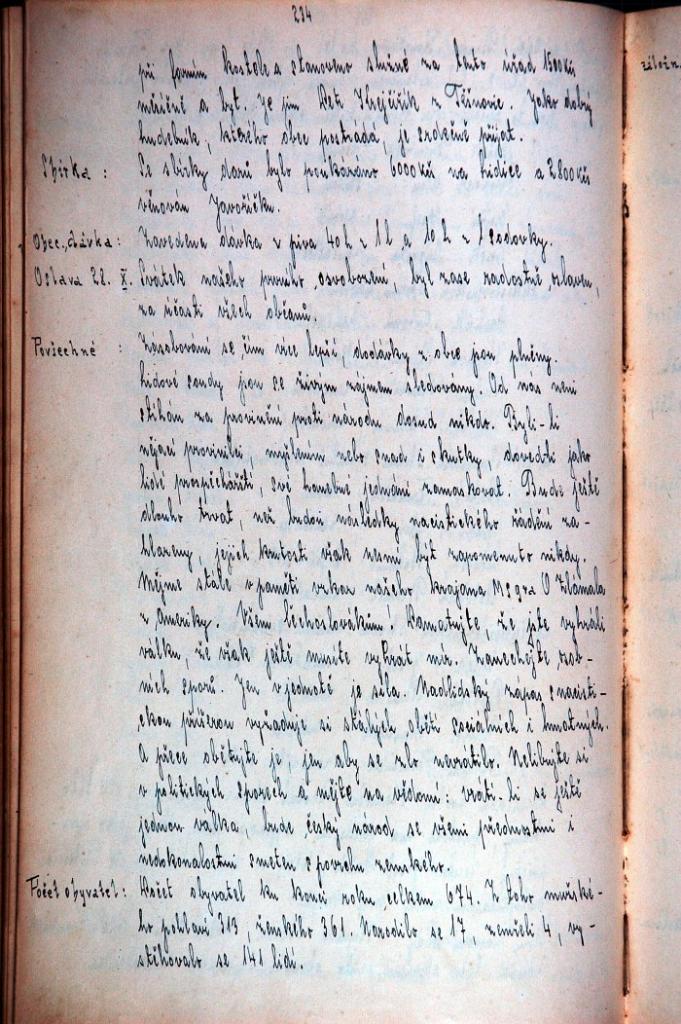 234
při farním kostele a stanoveno služné za tento úřad 1500 Kčs
měsíčně a byt. Je jím Petr z Tišnovic. Jako dobrý
hudebník, kterého obec postrádá, je srdečně přijat.
Sbírka : Ze sbírky darů bylo poukázáno 6000 Kčs na Lidice a 2800 Kčs
věnován Javoříčku.
Obec. dávka : Zavedena dávka z piva 40 h z 1 l a 10 h z 1 sodovky.
Oslava 28. X. Svátek našeho prvního osvobození, byl zase radostně oslaven,
za účasti všech občanů.
Povšechné : Zásobování se čím více lepší, dodávky z obce jsou plněny.
Lidové soudy jsou se živým zájmem sledovány. Od nás není
stíhán za provinění proti národu dosud nikdo. Byli-li
nějací provinilci, myšlením nebo snad i skutky, dovedli jako
lidé prospěcháři, své hanebné jednání zamaskovat. Bude ještě
dlouho trvat, než budou následky nacistického řádění za-
hlazeny, jejich krutosti však nesmí být zapomenuto nikdy.
Mějme stále v paměti vzkaz našeho krajana Msgra O Zlámala
z Ameriky. Všem Čechoslovákům! Pamatujte, že jste vyhráli
válku, že však ještě musíte vyhrát mír. Zanechejte osob-
ních sporů. Jen v jednotě je síla. Nadlidský zápas s nacisti-
ckou příšerou vyžaduje si stálých obětí sociálních i hmotných.
A přece obětujte je, jen aby se zlo nevrátilo. Nelibujte si
v politických sporech a mějte na vědomí: vrátí-li se ještě
jednou válka, bude český národ se všemi přednostmi i
nedokonalostmi smeten s povrchu zemského.
Počet obyvatel : Počet obyvatel ku konci roku celkem 674. Z toho mužské-
ho pohlaví 313, ženského 361. Narodilo se 17, zemřeli 4, vy-
stěhovalo se 141 lidí.